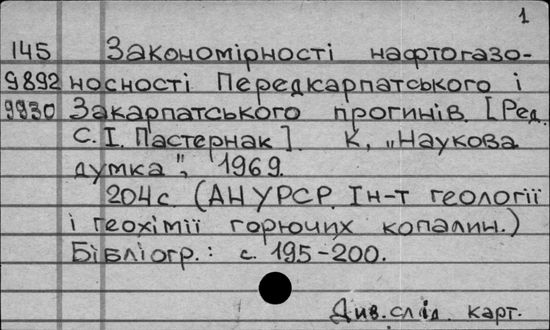 1
145 Закономірності нафтогазо-
9892 носності Передкарпатського і
9930 Закарпатського прогинів. [Ред.
С.І. Пастернак]. К, „Наукова
думка", 1969.
204 с. (АН УРСР. Ін-т геології
і геохімії горючих копалин.)
Бібліогр.: с. 195-200.
Див. слід. карт.